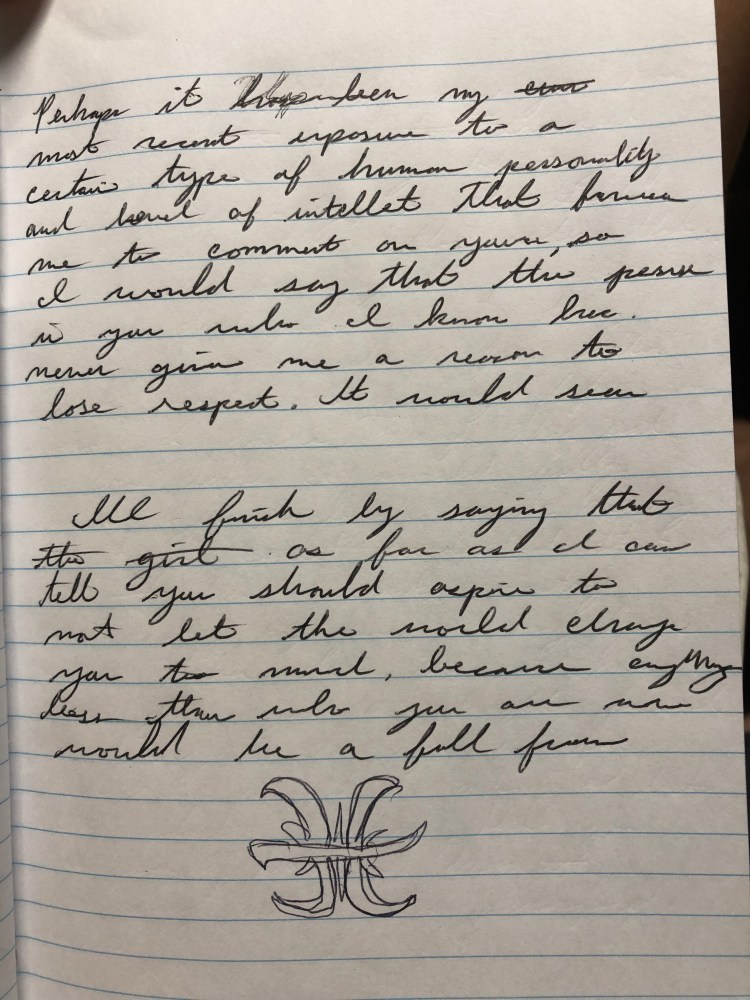 Perhaps it been my
most recent exposure to a
certain type of human personality
and level of intellet that forces
me to comment on yours, so
I would say that the person
in you who I know has
never given me a reason to
lose respect. It would seem
I'll finish by saying that
the girl as far as I can
tell you should aspire to
not let the world change
you too much, because anything
less than who you are now
would be a fall from